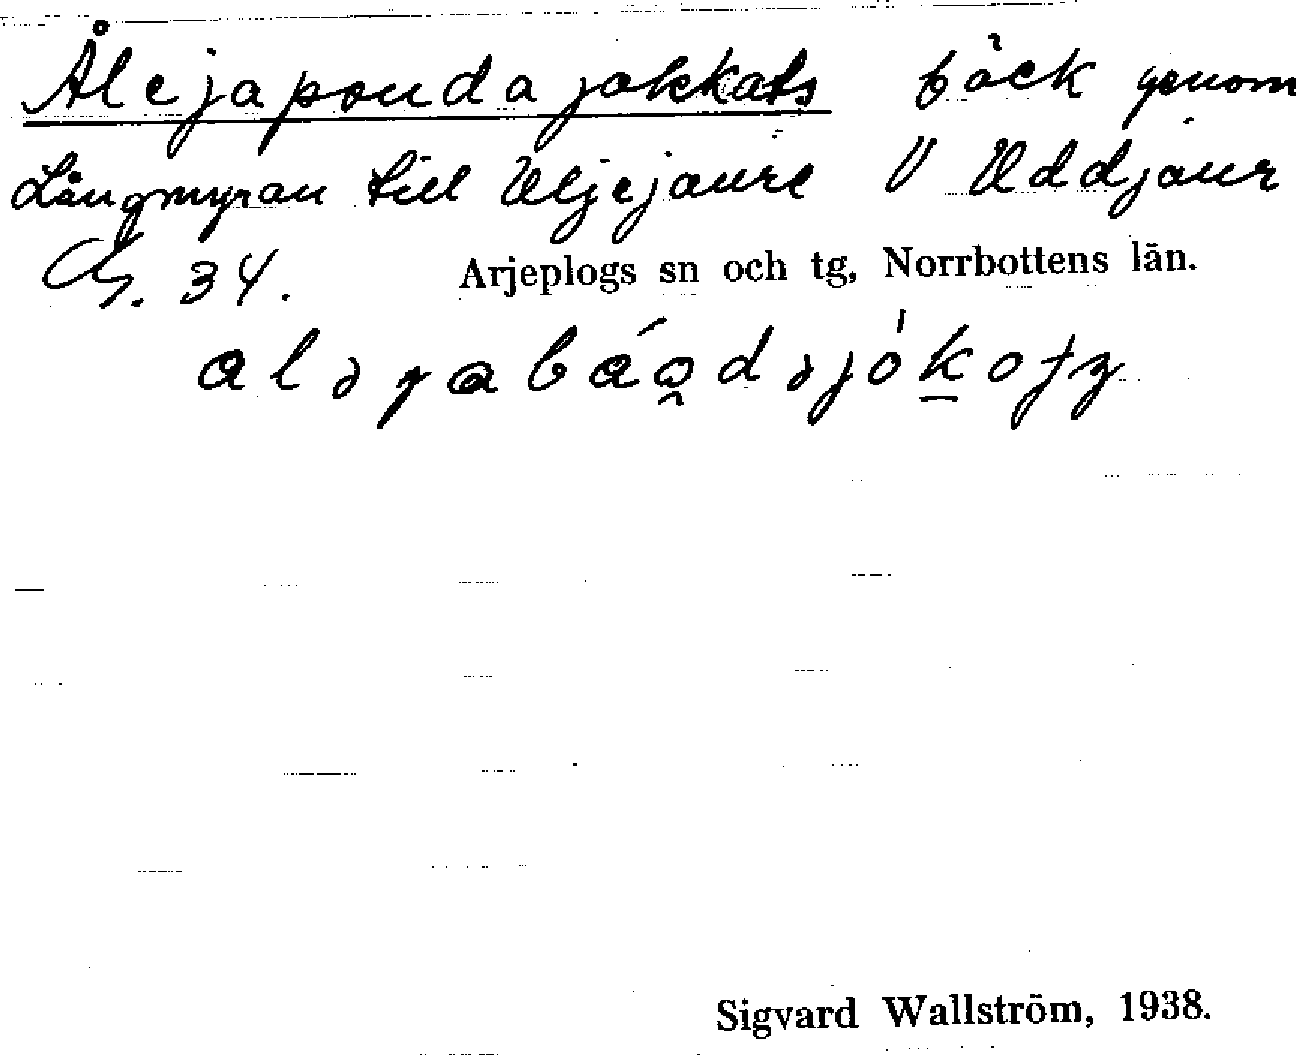 Ålejapoudajakkats bäck genom
Långmyran till Uljejaure V Uddjaur
G. 34. Arjeplogs sn och tg, Norrbottens län.
Sigvard Wallström, 1938.